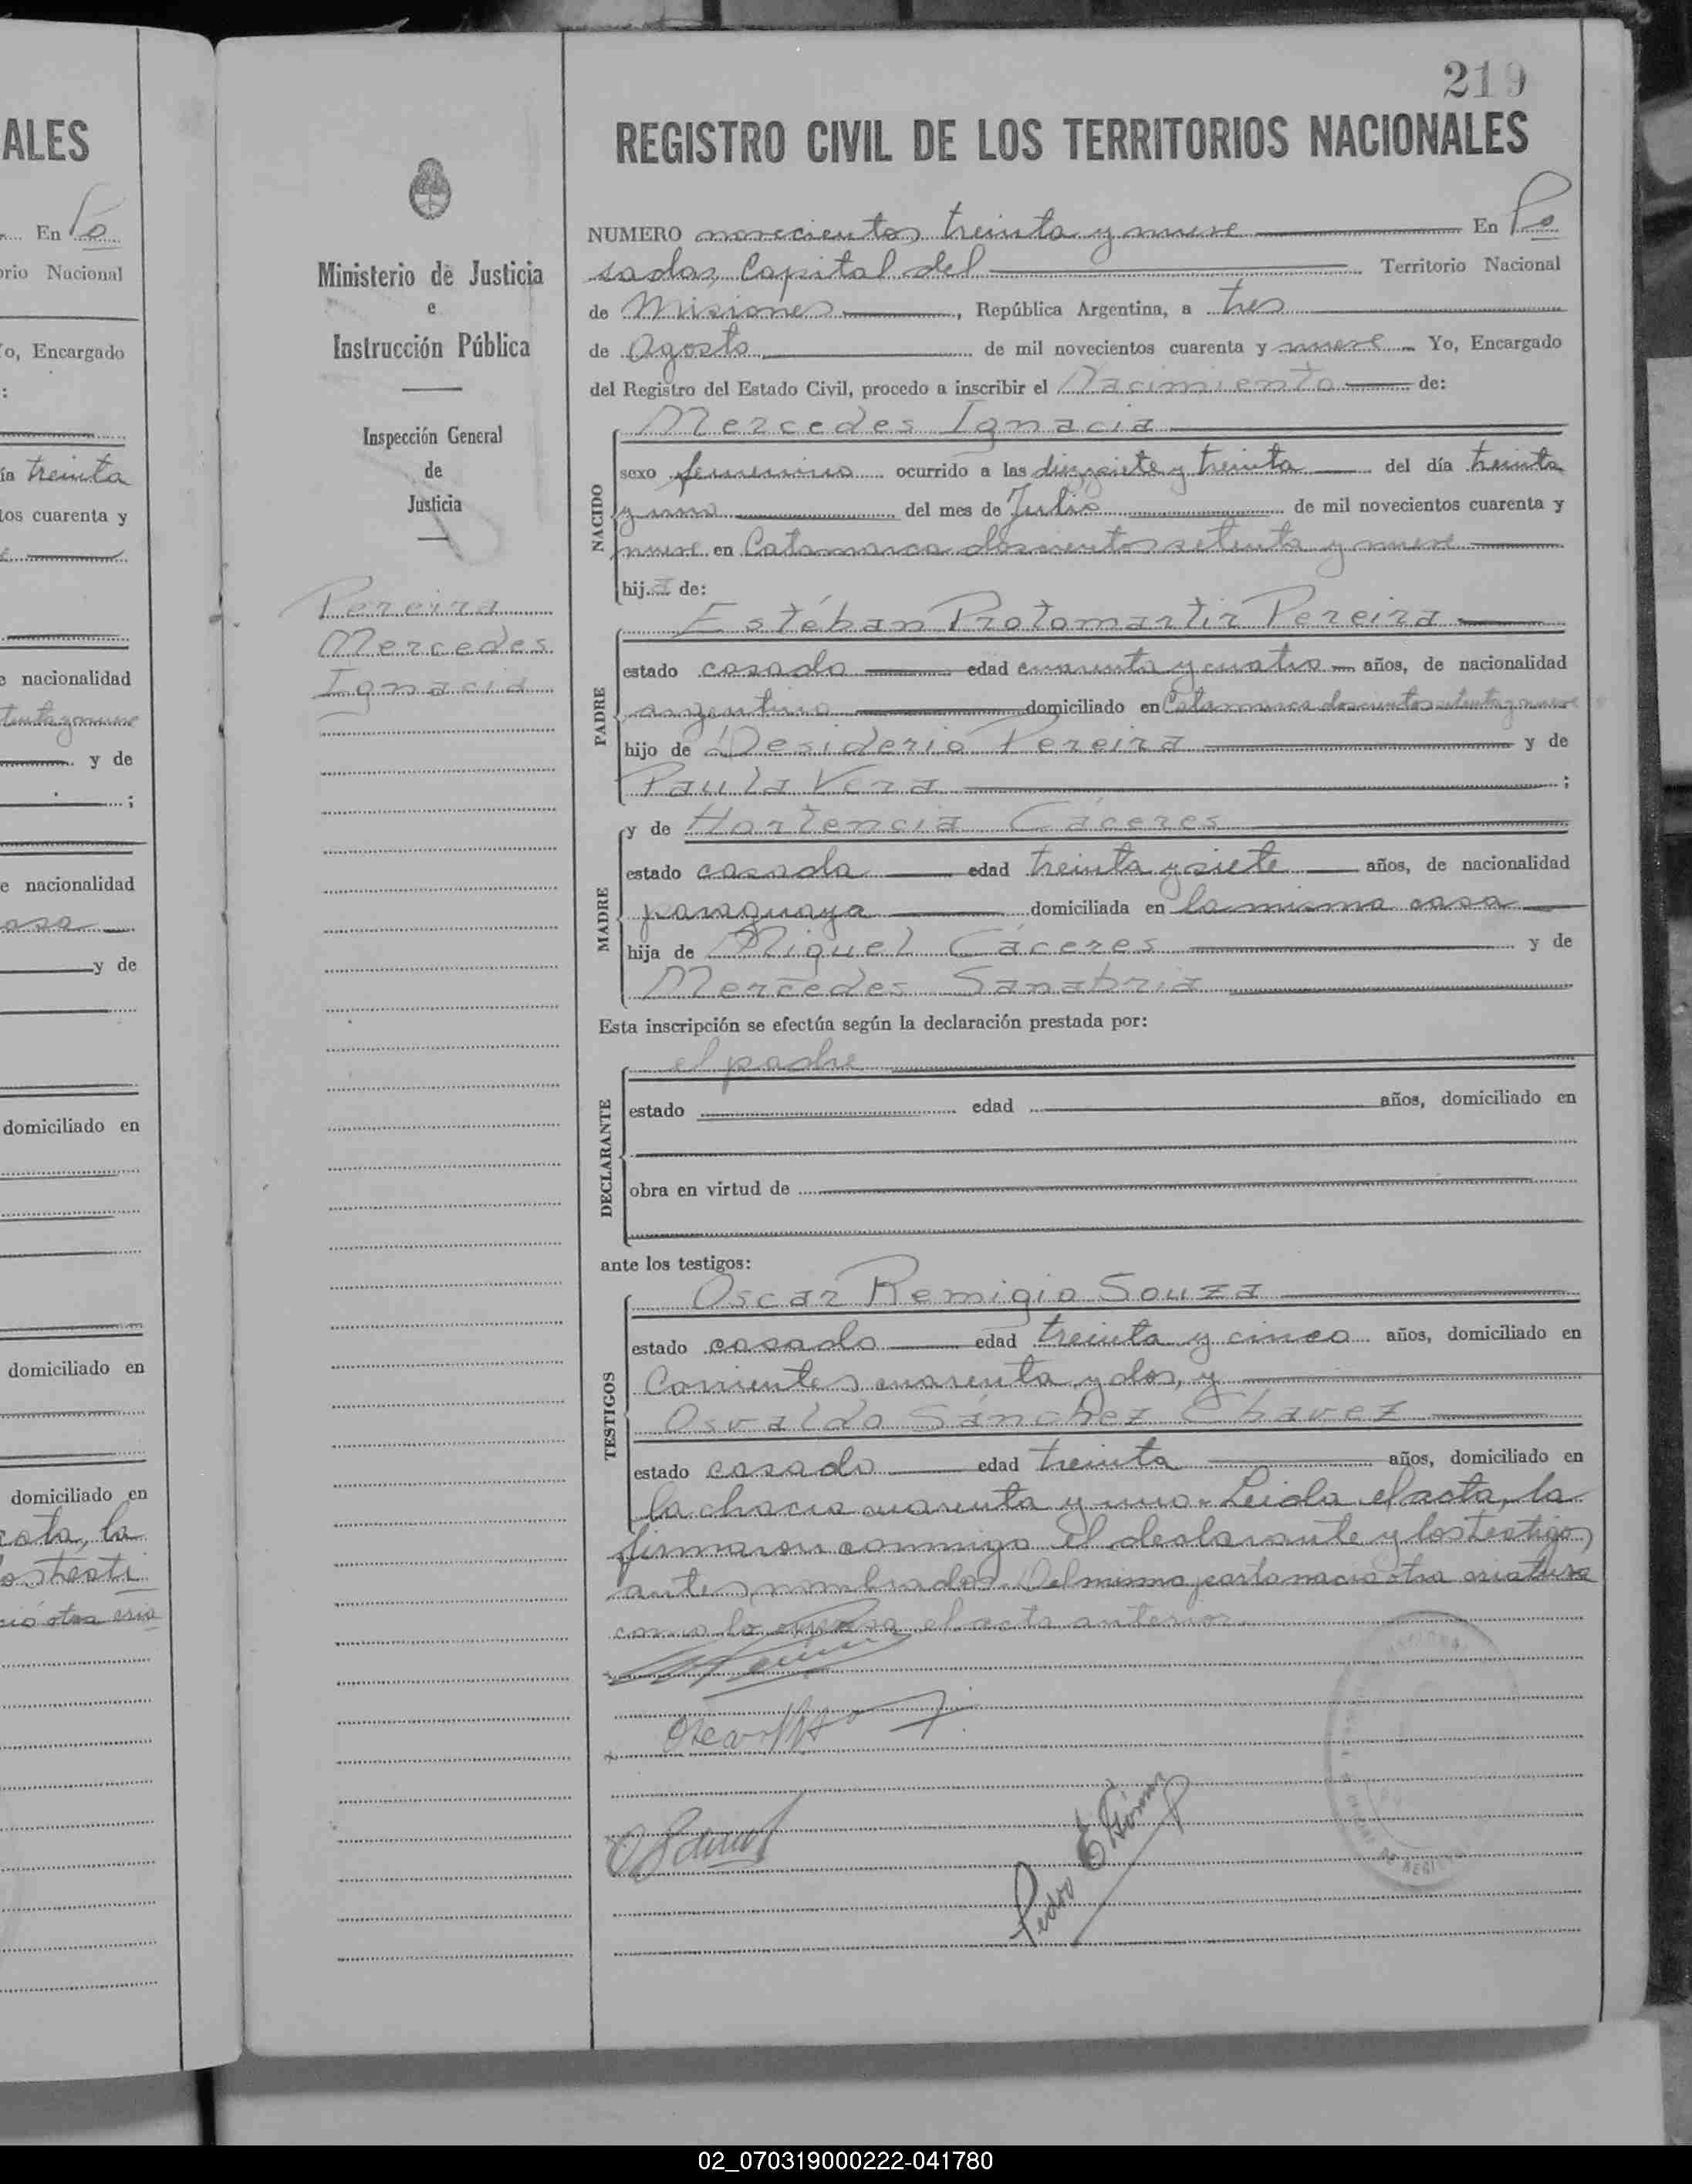 ALES
En Po
rio Nacional
o, Encargado
:
ía treinta
tos cuarenta y
e nacionalidad
tenta y nueve
y de
;
e nacionalidad
asa
y de
domiciliado en
domiciliado en
domiciliado en
cota, la
os testi
ció otra cria
219
REGISTRO CIVIL DE LOS TERRITORIOS NACIONALES
Ministerio de Justicia
e
Instrucción Pública
Inspección General
de
Justicia
Pereira
Mercedes
Ignacia
NUMERO novecientos treinta y nueve En Po
sadas, Capital del Territorio Nacional
de Misiones, República Argentina, a tres
de Agosto de mil novecientos cuarenta y nueve Yo, Encargado
del Registro del Estado Civil, procedo a inscribir el Nacimiento de:
Mercedes Ignacia
NACIDO
sexo femenino ocurrido a las diezsiete y treinta del día treinta
y uno del mes de Julio de mil novecientos cuarenta y
nueve en Catamarca doscientos setenta y nueve
hija de:
Estéban Protomartir Pereira
PADRE
estado casado edad cuarenta y cuatro años, de nacionalidad
argentino domiciliado en Catamarca doscientos setenta y nueve
hijo de Desiderio Pereira y de
Paula Vera ;
MADRE
y de Hortencia Cáceres
estado casada edad treinta y siete años, de nacionalidad
paraguaya domiciliada en la misma casa
hija de Miguel Cáceres y de
Mercedes Sanabria
Esta inscripción se efectúa según la declaración prestada por:
el padre
DECLARANTE
estado edad años, domiciliado en
obra en virtud de
ante los testigos:
Oscar Remigio Souza
TESTIGOS
estado casado edad treinta y cinco años, domiciliado en
Corrientes cuarenta y dos, y
Osvaldo Sánchez Chavez
estado casado edad treinta años, domiciliado en
la chacra cuarenta y uno. Leida el acta, la
firmaron conmigo el declarante y los testigos
antes nombrados. Del mismo parto nació otra criatura
como lo expresa el acta anterior.
Pedro E
02_070319000222-041780